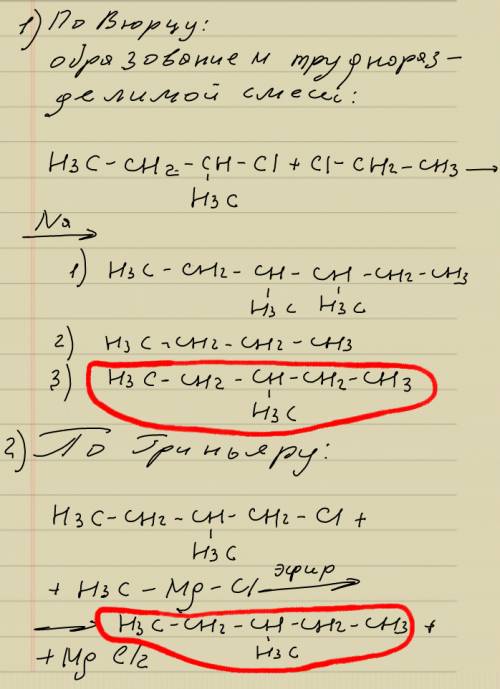 1) По Вюрцу:
образованием трудн​ораз-
делимой смеси:
H3C-CH2-CH-Cl+Cl-CH2-CH3
H3C
Na
1) H3C-CH2-CH-CH-CH2-CH3
H3C H3C
2) H3C-CH2-CH2-CH3
3) H3C-CH2-CH-CH2-CH3
H3C
2) По Гриньяру:
H3C-CH2-CH-CH2-Cl+
H3C
+ H3C-Mg-Cl эфир
H3C-CH2-CH-CH2-CH3 +
H3C
+ MgCl2